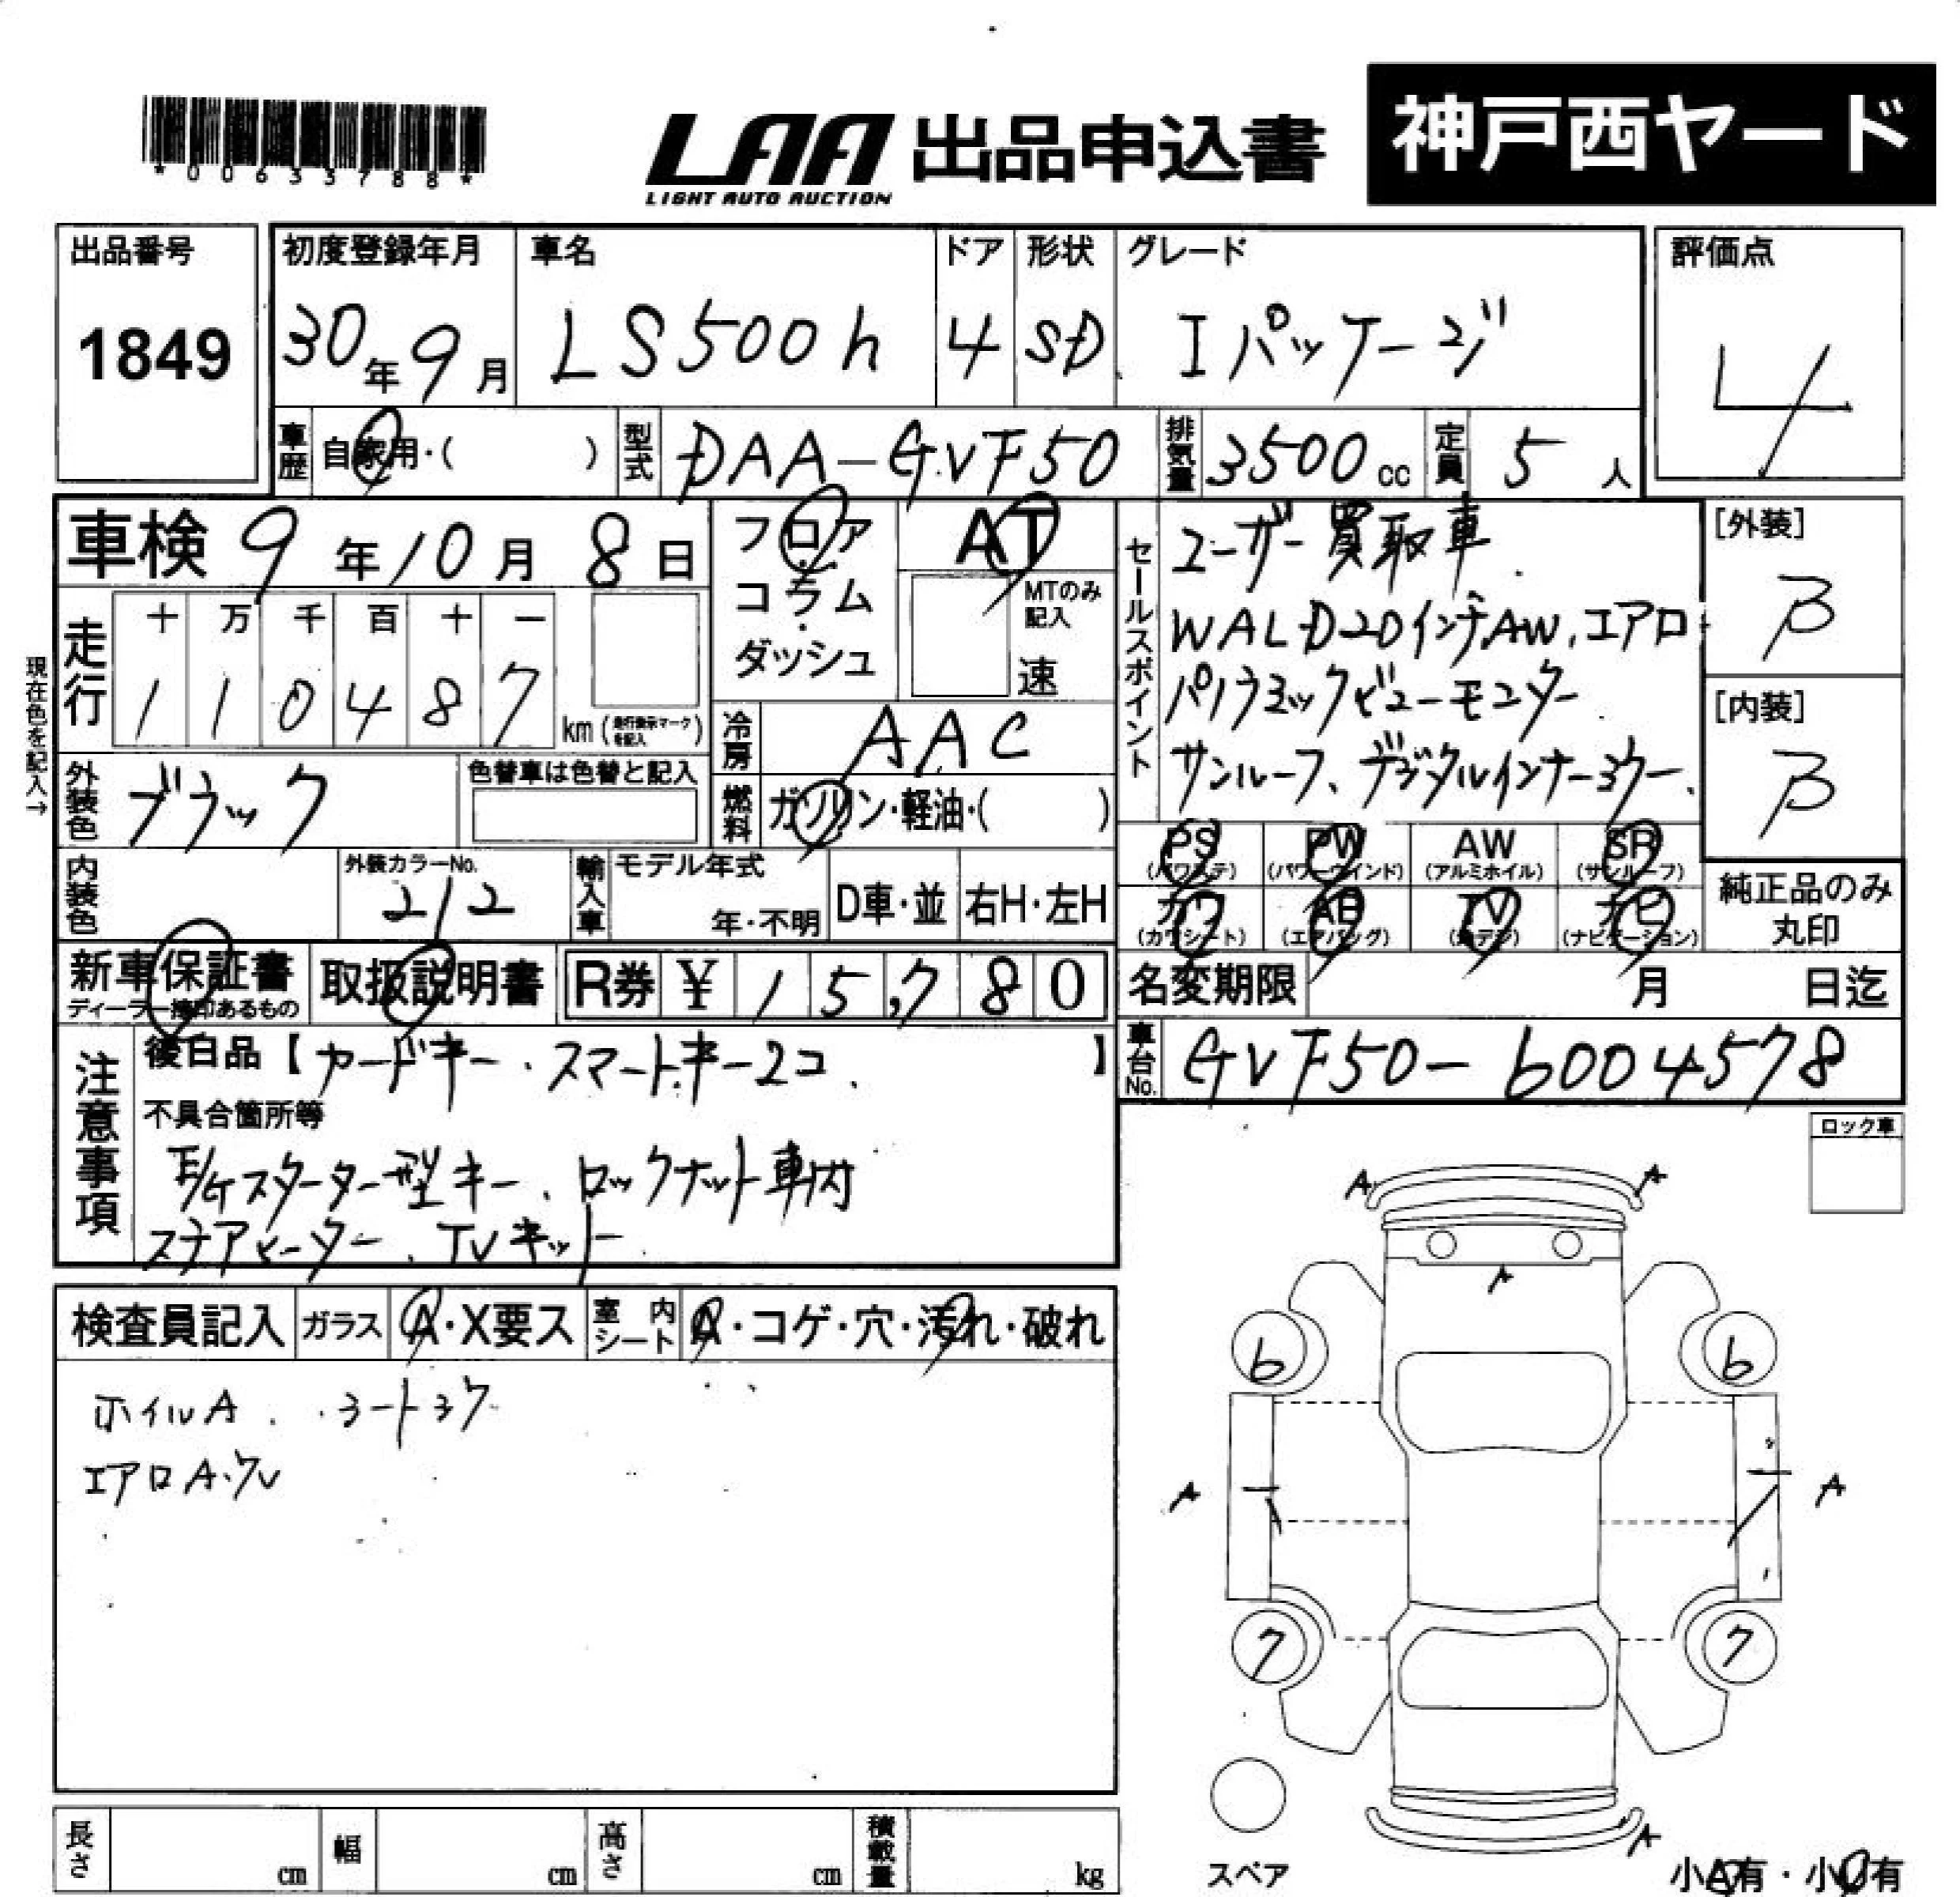 *00633788*
LAA 出品申込書
LIGHT AUTO AUCTION
神戸西ヤード
出品番号
1849
初度登録年月
30年9月
車名
LS500h
ドア
4
形状
SD
グレード
Iパッケージ
評価点
4
車歴
自家用・( )
型式
DAA-GVF50
排気量
3500cc
定員
5人
車検 9年10月8日
現在色を記入→
走行
十 万 千 百 十 一
1 1 0 4 8 7
km (走行表示マークを記入)
フロア
コラム
ダッシュ
AT
MTのみ記入
速
冷房
AAC
燃料
ガソリン・軽油・( )
セールスポイント
ユーザー買取車.
WALD20インチAW、エアロ
パノラミックビューモニター
サンルーフ、デジタルインナーミラー、
[外装]
B
[内装]
B
外装色
ブラック
色替車は色替と記入
内装色
外装カラーNo.
212
輸入車
モデル年式
年・不明
D車・並
右H・左H
PS
(パワステ)
PW
(パワーウインド)
AW
(アルミホイル)
SR
(サンルーフ)
カワ
(カワシート)
AB
(エアバッグ)
TV
(地デジ)
ナビ
(ナビゲーション)
純正品のみ
丸印
新車保証書
ディーラー捺印あるもの
取扱説明書
R券 ¥ 15,780
名変期限 月 日迄
車台No.
GVF50-6004578
注意事項
後日品【カードキー・スマートキー2コ. 】
不具合箇所等
スターター型キー、ロックナット車内
TVキット
ロック車
検査員記入
ガラス
A・X要ス
室内シート
A・コゲ・穴・汚れ・破れ
ホイルA. シートシワ
エアロA・ワレ
A A
A
6 6
A A
7 7
A
スペア
小A有・小U有
長さ cm
幅 cm
高さ cm
積載量 kg